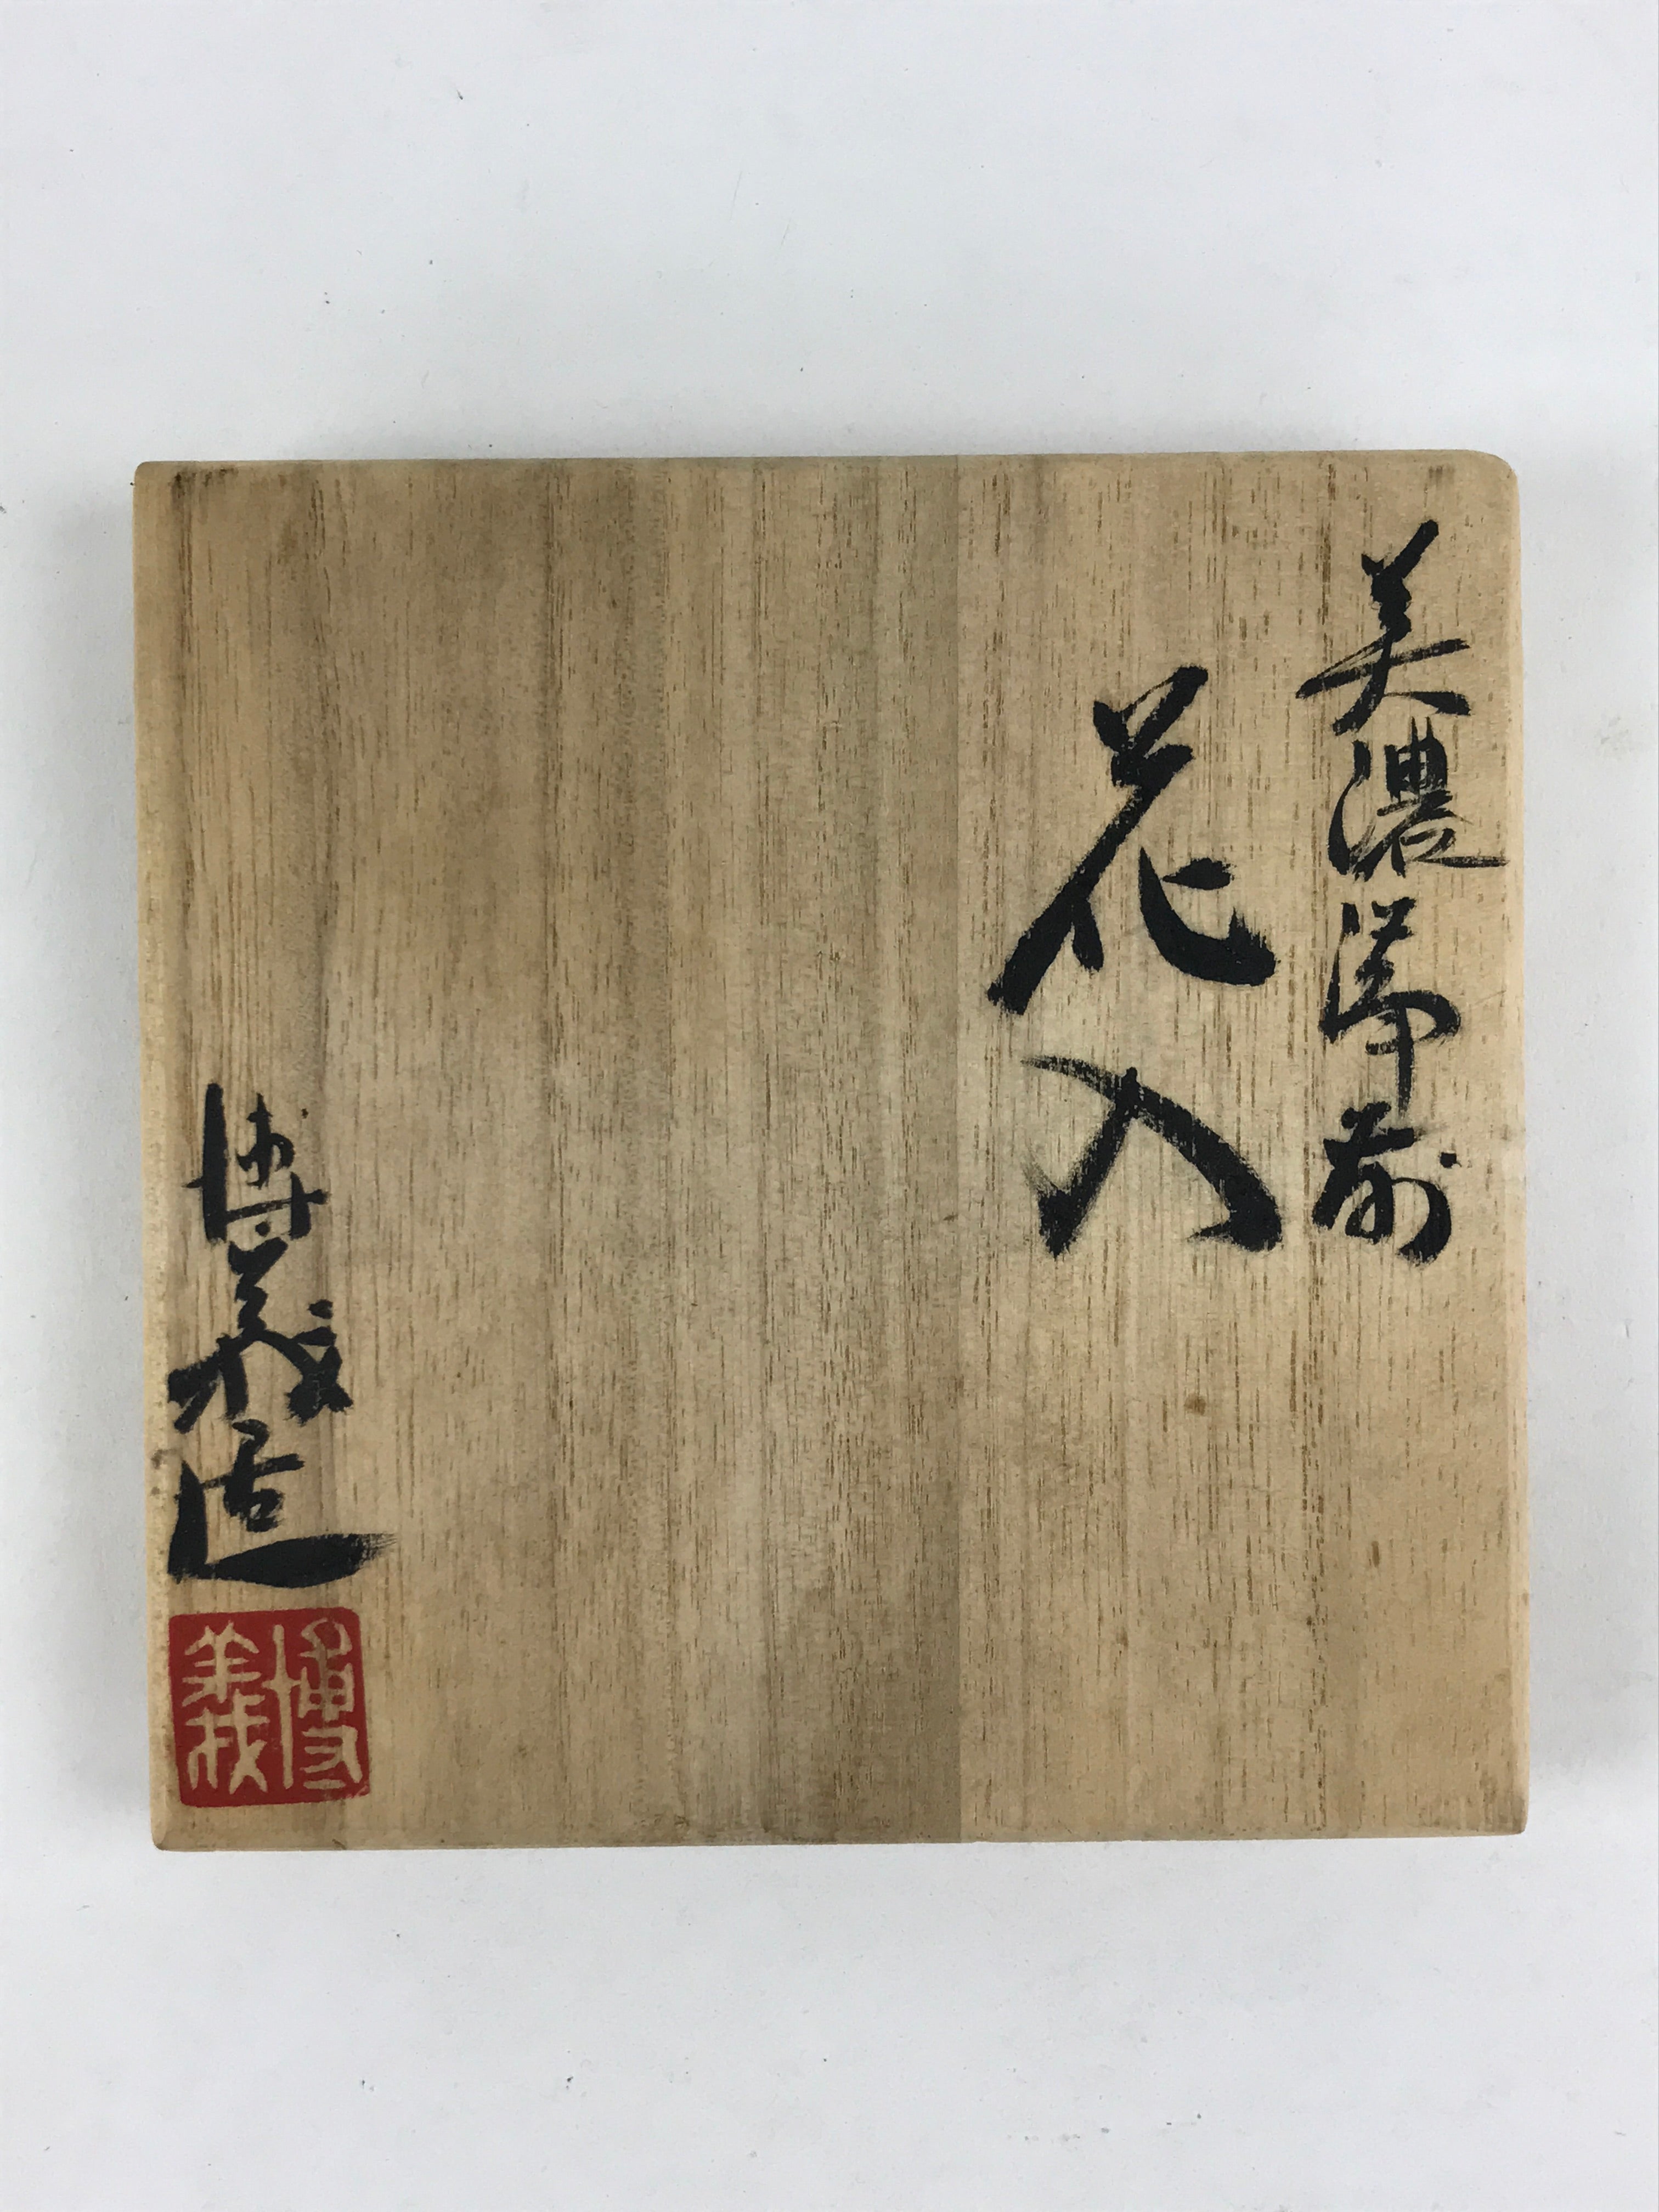 美濃伊前
花入
博義造
博義